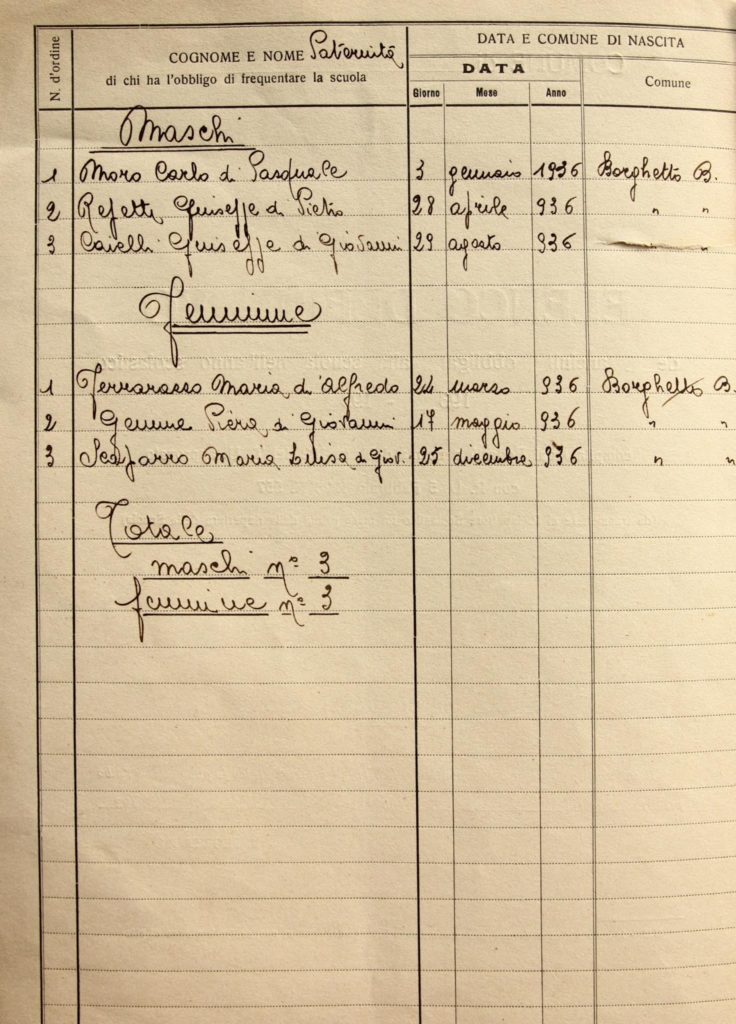 N. d'ordine
COGNOME E NOME Paternità
di chi ha l'obbligo di frequentare la scuola
DATA E COMUNE DI NASCITA
DATA
Comune
Giorno Mese Anno
Maschi
1 Moro Carlo di Pasquale 3 gennaio 1936 Borghetto B.
2 Refetti Giuseppe di Pietro 28 aprile 936 " "
3 Caielli Giuseppe di Giovanni 29 agosto 936 "
Femmine
1 Ferrarasso Maria di Alfredo 24 marzo 936 Borghetto B.
2 Gemme Piera di Giovanni 17 maggio 936 " "
3 Scaparro Maria Luisa di Giov. 25 dicembre 936 " "
Totale
maschi n° 3
femmine n° 3